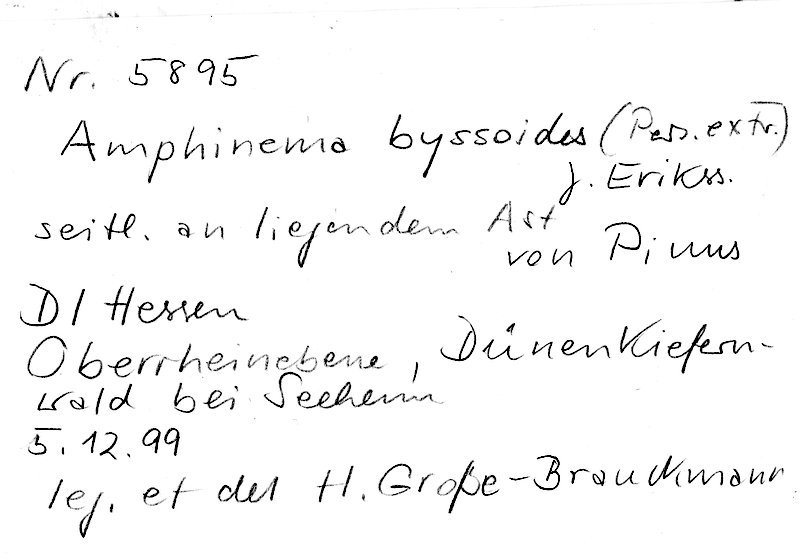 Nr. 5895
Amphinema byssoides (Pers. ex Fr.)
J. Erikss.
seitl. an liegendem Ast
von Pinus
D / Hessen
Oberrheinebene, Dünenkiefern-
wald bei Seeheim
5.12.99
leg. et det H. Große-Brauckmann